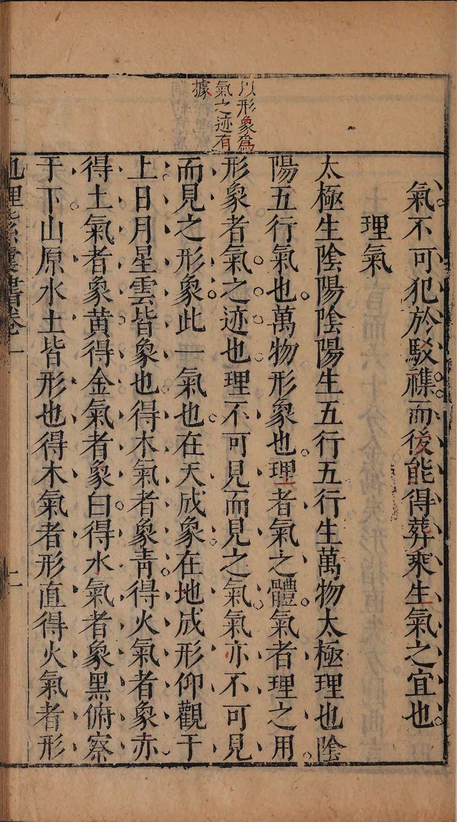 以形象爲
氣之迹有
據
氣不可犯於駁襍而後能得葬乘生氣之宜也
理氣
太極生陰陽陰陽生五行五行生萬物太極理也陰
陽五行氣也萬物形象也理者氣之體氣者理之用
形象者氣之迹也理不可見而見之氣氣亦不可見
而見之形象此一氣也在天成象在地成形仰觀于
上日月星雲皆象也得木氣者象青得火氣者象赤
得土氣者象黃得金氣者象白得水氣者象黑俯察
于下山原水土皆形也得木氣者形直得火氣者形